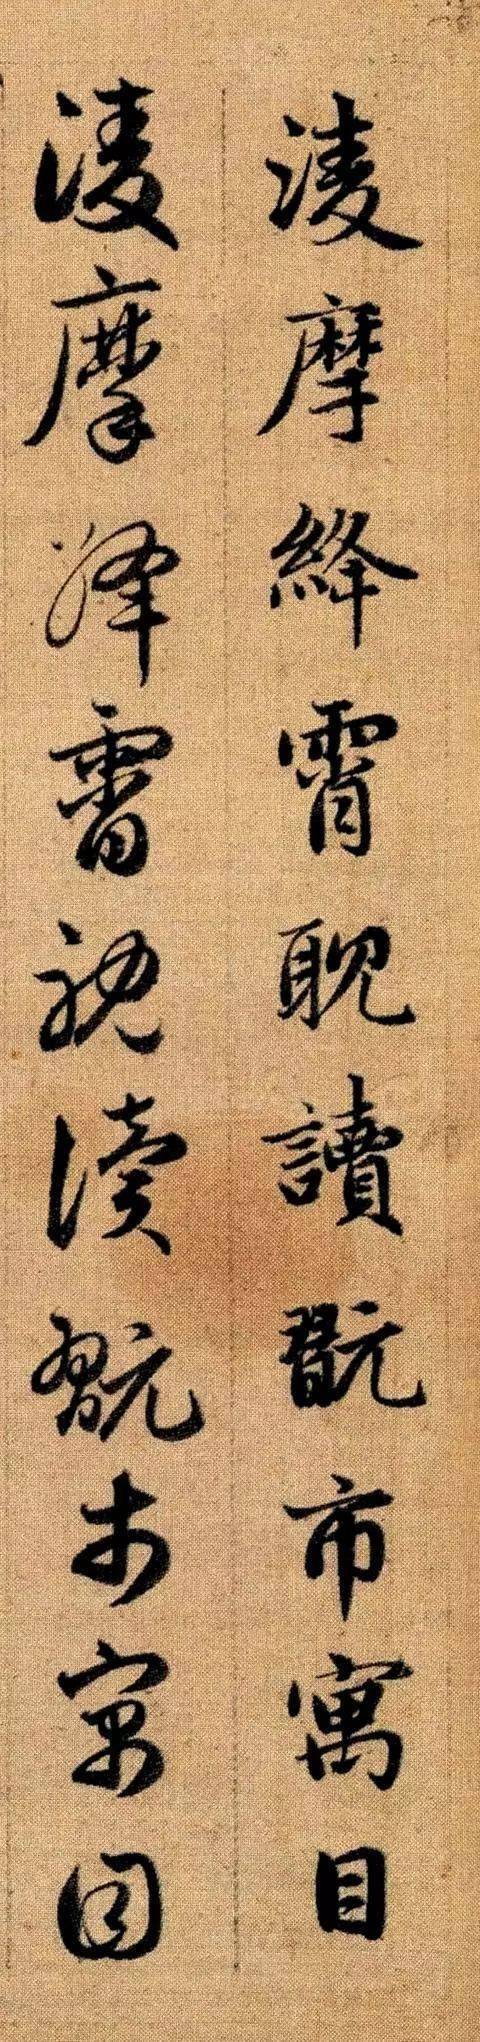 淩摩絳霄耽讀翫市寓目
淩摩絳霄耽讀翫市寓目